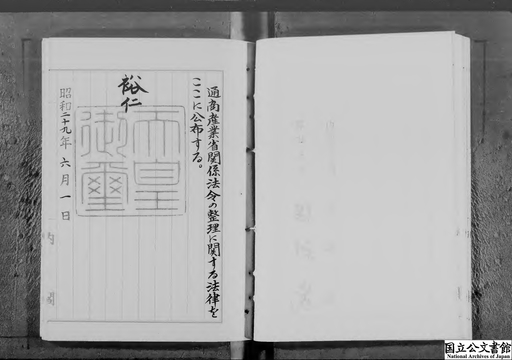 通商産業省関係法令の整理に関する法律を
ここに公布する。
裕仁
天皇
御璽
昭和二十九年六月一日
内閣
国立公文書館
National Archives of Japan